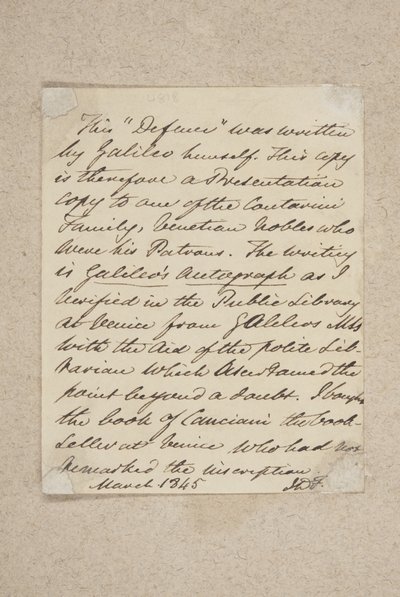 This "Defence" was written
by Galileo himself. This copy
is therefore a Presentation
Copy to one of the Contarini
Family, Venetian Nobles who
were his Patrons. The writing
is Galileo's Autograph as I
Verified in the Public Library
at Venice from Galileos Mss
with the aid of the polite Lib-
rarian which Ascertained the
point beyond a doubt. I bought
the book of Canciani the book-
seller at Venice who had not
remarked the inscription.
March 1845 JDF.